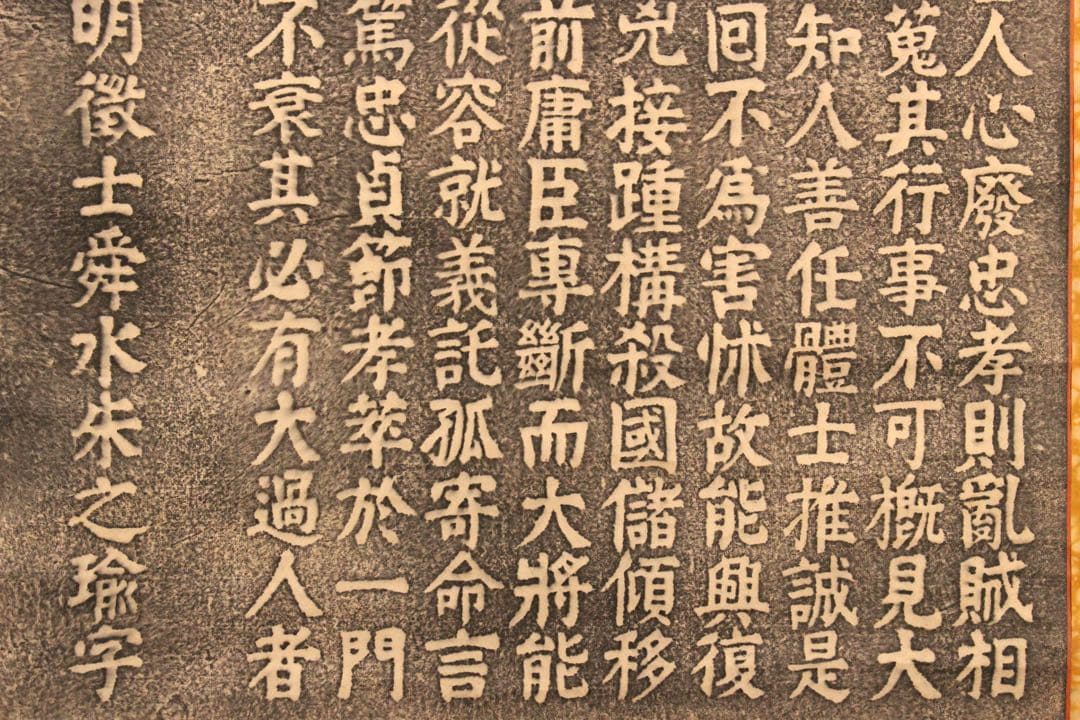 人心廢忠孝則亂賊相
蒐其行事不可槪見大
知人善任體士推誠是
回不爲害怵故能興復
兇接踵構殺國儲傾移
前庸臣專斷而大將能
從容就義託孤寄命言
篤忠貞節孝萃於一門
不衰其必有大過人者
明徵士舜水朱之瑜字